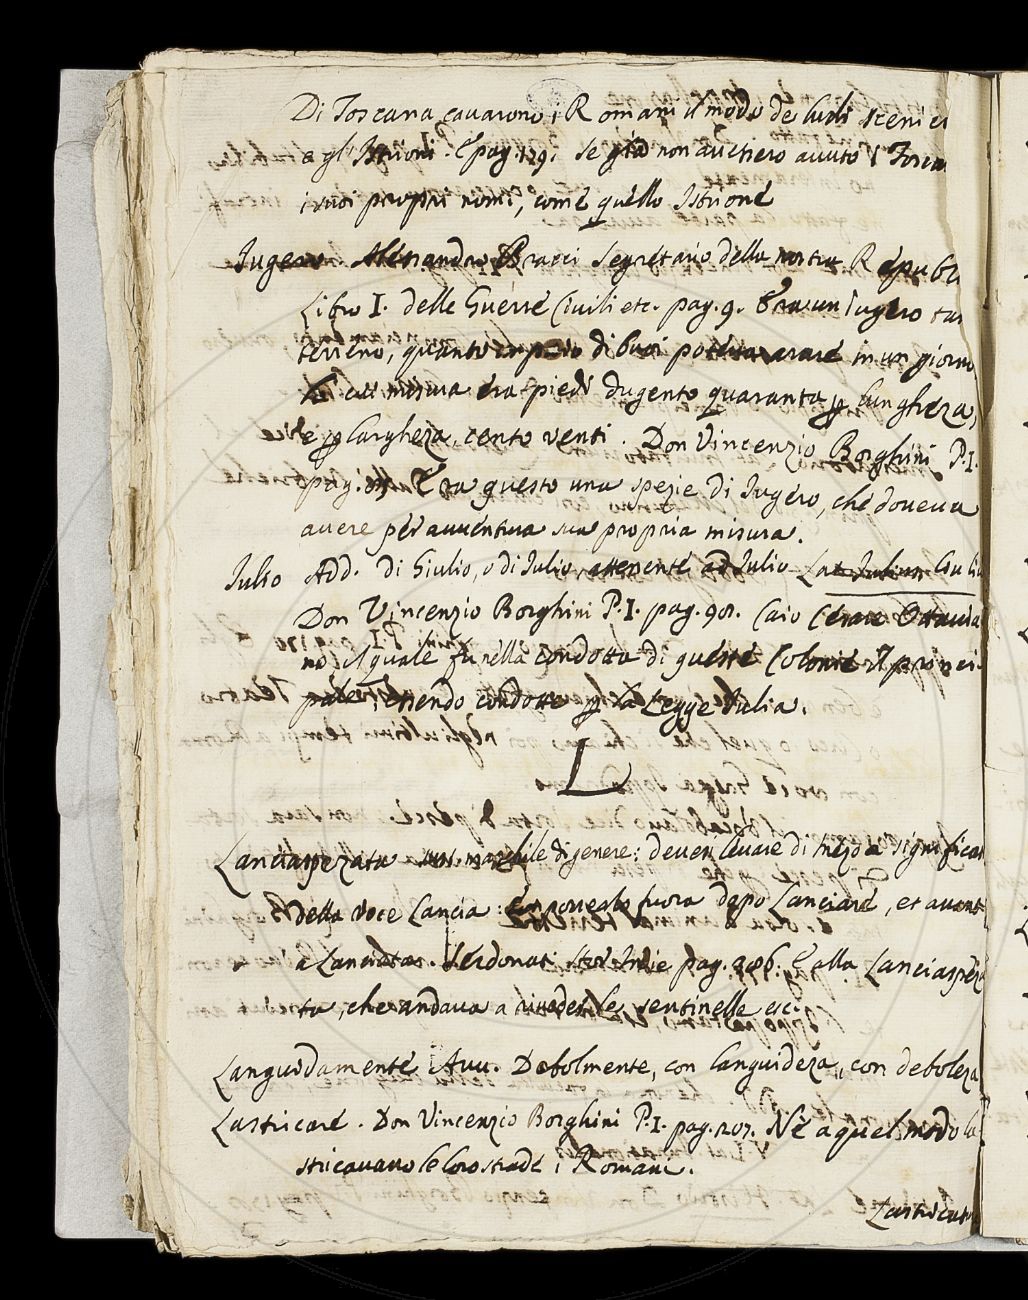 Di Toscana cavarono i Romani il modo de Ludi scenici
e gl' Istrioni. E pag. 129. se già non avessero avuto i Tosca
i suoi propri nomi, come quello Istrione
Iugero Alessandro Bracci Segretario della nostra Republ
Libro I. delle Guerre Civili etc. pag. 9. Era un Iugero tan
terreno, quanto un paio di buoi poteva arare in un giorno
misura era piedi dugento quaranta ꝑ lungheza,
e ꝑ largheza, cento venti. Don Vincenzio Borghini P.I.
pag. Era questo una spezie di Iugero, che doveva
avere per avventura sua propria misura.
Iulio Add. di Giulio, o di Iulio attenente ad Iulio Lat. Iulius
Don Vincenzio Borghini P.I. pag. Caio Cesare Ottavia
no il quale fu nella condotta di queste Colonie il princi-
pale, essendo condotte ꝑ la Legge Iulia.
L
Lanciaspezata sust. mascule di genere: deve levare di significa
della voce Lancia: e porverlo fuora dopo Lanciare, et avant
a Lanciata. Serdonat. Stor. Indie pag. 286. E alla Lanciaspeza
ta, che andava a riveder le sentinelle etc.
Languidamente Avv. Debolmente, con languideza, con deboleza
Lastricare. Don Vincenzio Borghini P.I. pag. 207. Nè a quel modo la
stricavano le loro strade i Romani.
Lastricato